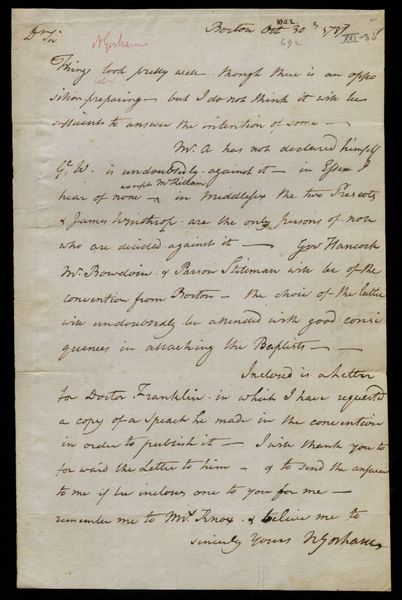 Boston Oct 30th 1787
Dr Sir
N Gorham
Things look pretty well - though there is an oppo
sition preparing - but I do not think it will be
sufficient to answer the intention of some -
Mr. A has not declared himself
Gl. W. is undoubtedly against it - in Essex I
except Mr
hear of none - in Middlesex the two Prescots
& James Winthrop are the only persons of note
who are decided against it - Govr Hancock
Mr. Bowdoin & Parson Stileman will be of the
convention from Boston - the choice of the latter
will undoubtedly be attended with good conse
quences in attaching the Baptists -
Inclosed is a Letter
for Doctor Franklin in which I have requested
a copy of a Speach he made in the convention
in order to publish it - I will thank you to
forward the Letter to him - & to send the answer
to me if he incloses one to you for me -
remember me to Mrs. Knox & believe me to
sincerely Yours N Gorham